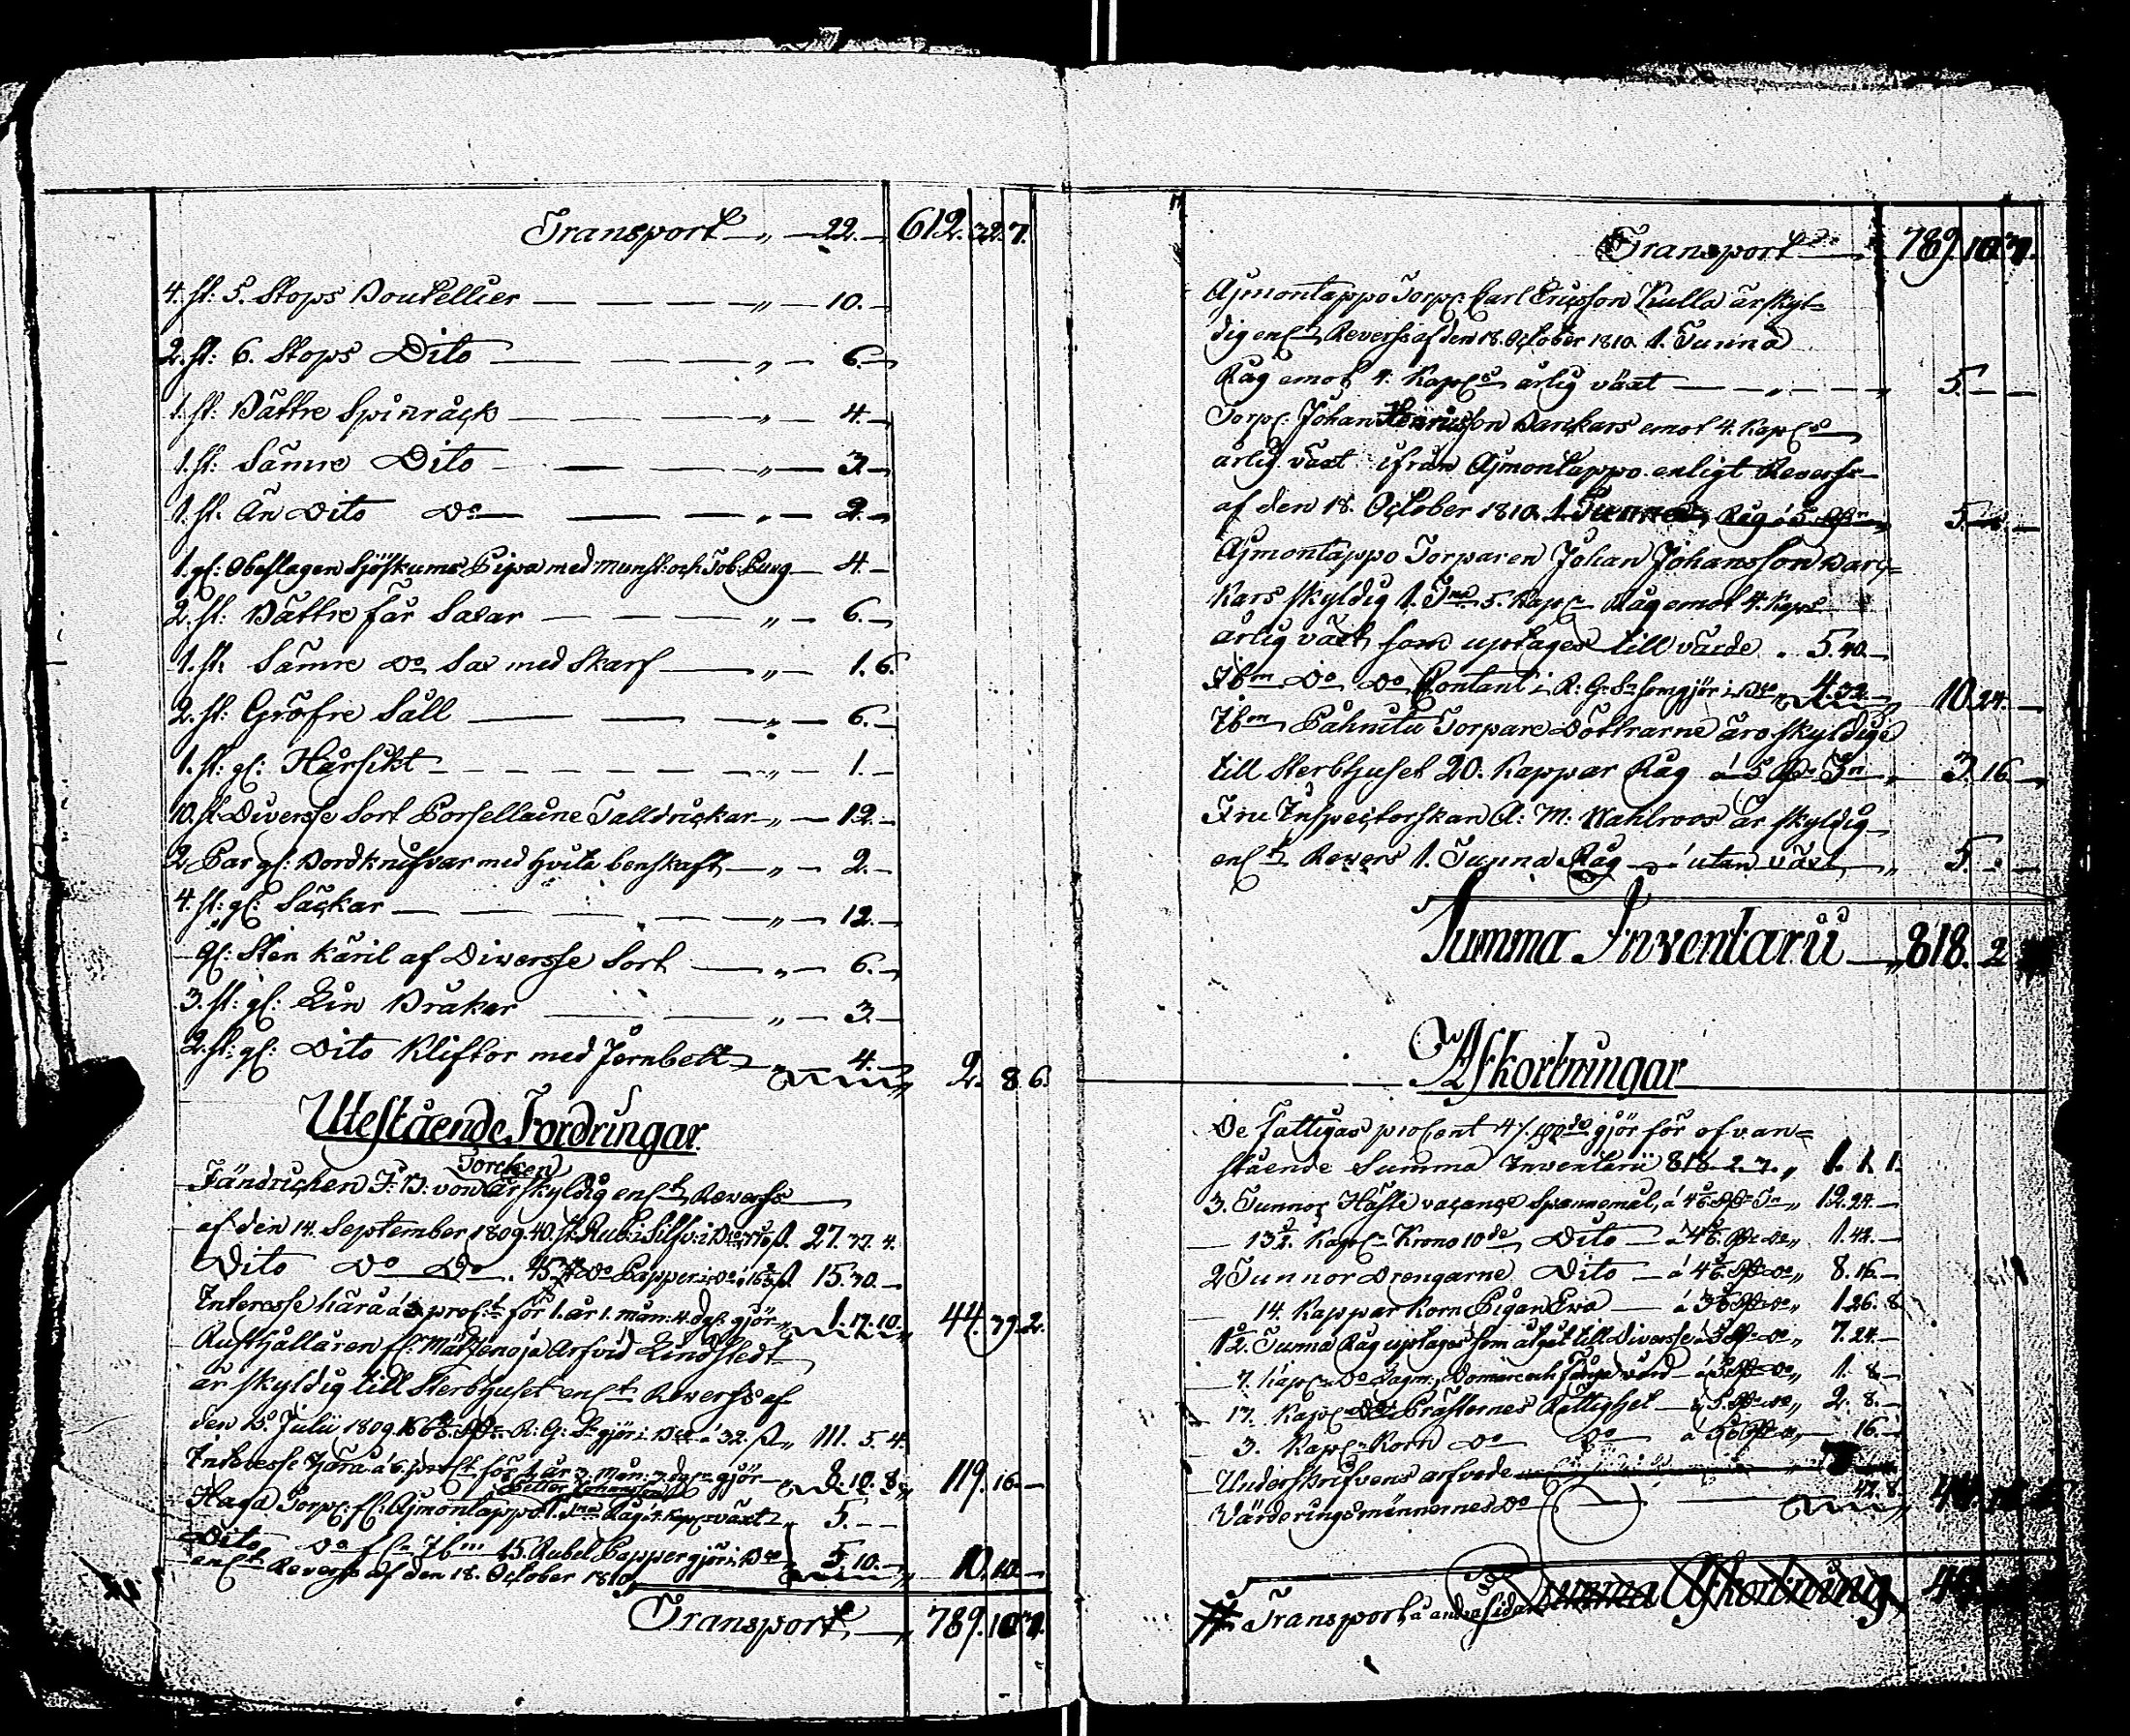 Transport „ 22. 612. 32. 7.
4. st: 5. Stops Boutellier „ 10.
2. st: 6. Stops Dito „ 6.
1. st: Bättre Spinråck „ 4.
1. st: Sämre Dito „ 3.
1. st. Än Dito Do „ 2.
1. gl: Obeslagen Sjöskums Pipa med munst. och Tob. Pung 4.
2. st: Bättre får Saxar „ 6.
1. st. Sämre Do Sax med Skarf „ 1. 6.
2. st: Gröfre Såll „ 6.
1. st: gl: Hårsikt „ 1.
10. st Diversse Sort Porsellaine Talldrickar „ 12.
2 Par gl: Bordknifvar med hvita benskaft „ 2.
4. st: gl: Säckar „ 12.
gl: Sten käril af Diversse Sort „ 6.
3. st: gl: Lin Bråkor „ 3.
2. st: gl: Dito Kliftor med Jernbett „ 4. 2. 8. 6.
Utestående Fordringar.
Torcken
Fändrichen F: B: von är skyldig enlt Reverss
af den 14. September 1809. 40. st. Rub: i Silfv: i 27. 37. 4.
Dito Do Do. 45 Do Papper i Do 15. 30.
Interesse härå á 3 proCt för 1. år 1. mån: 4. dgr gjör „ 1. 17. 10. 44. 37. 2.
Rusthållaren fr: Mälkenoja Arfvid Lindstedt
är skyldig till Sterbhuset enlt Reverss af
den Julii 1809. R: G: gjör i á 32. „ 111. 5. 4.
Interesse härå á 6. proCt för 1. år 3. mån: 3. dgr gjör „ 8. 10. 8. 119. 16.
Petter Johansson
Haga Torp: fr: Ajmontappo 1. Tna Råg á 4. Kapr växt „ 5.
Dito Do fr Ibm 15. Rubel Papper gjör i
enlt Reverss af den 18. October 1810, 5. 10. 10. 10.
Transport „ 789. 10. 7.
Transport 789. 10. 7.
Ajmontappo Torp: Carl Ericsson Kulla är skyl=
dig enlt Reverss af den 18. October 1810. 1. Tunna
Råg emot 4. Kapr årlig växt „ 5.
Torp: Johan Henricsson Barckars emot 4. Kapr
årlig växt ifrån Ajmontappo enligt Reverss
af den 18. October 1810. 1. Tunna Råg á 5 5.
Ajmontappo Torparen Johan Johansson Barc=
kars skyldig 1. Tna 5. Kapr Råg emot 4. Kapr
årlig växt, som uptages till värde „ 5. 40.
Ibm Do Do Contant i R: G: som gjör i 4. 32. 10. 24.
Ibm Påhnitu Torpare Döttrarne äro skyldige
till Sterbhuset 20. Kappar Råg á 5 Tn „ 3. 16.
Fru Inspectorskan A: M: Wahlroos är skyldig
enlt Revers 1. Tunna Råg utan växt „ 5.
Summa Inventarii „ 818. 2
Afkortningar
De Fattigas proCent gjör för ofvan=
stående Summa Inventarii 818. 2. 7. „ 1. 1. 1.
3. Tunnor Häste vacance Spannemål, á „ 12. 24.
13½. Kapr Krono 10de Dito „ 1. 42.
2 Tunnor Drengarne Dito „ 8. 16.
14. Kappar Korn Pigan Ewa „ 1. 26. 8
1½. Tunna Råg uptages som åtgåt till Diversse „ 7. 24.
7. Kapr Do Lagm: Domare och „ 1. 8.
17. Kapr Do Prästernes Rättighet „ 2. 8.
3. Kapr Korn Do Do „ 16.
Underskrifvens arfvode
Värderingsmännernes Do 42. 8.
Summa Afkortning
# Transport å andra sidan